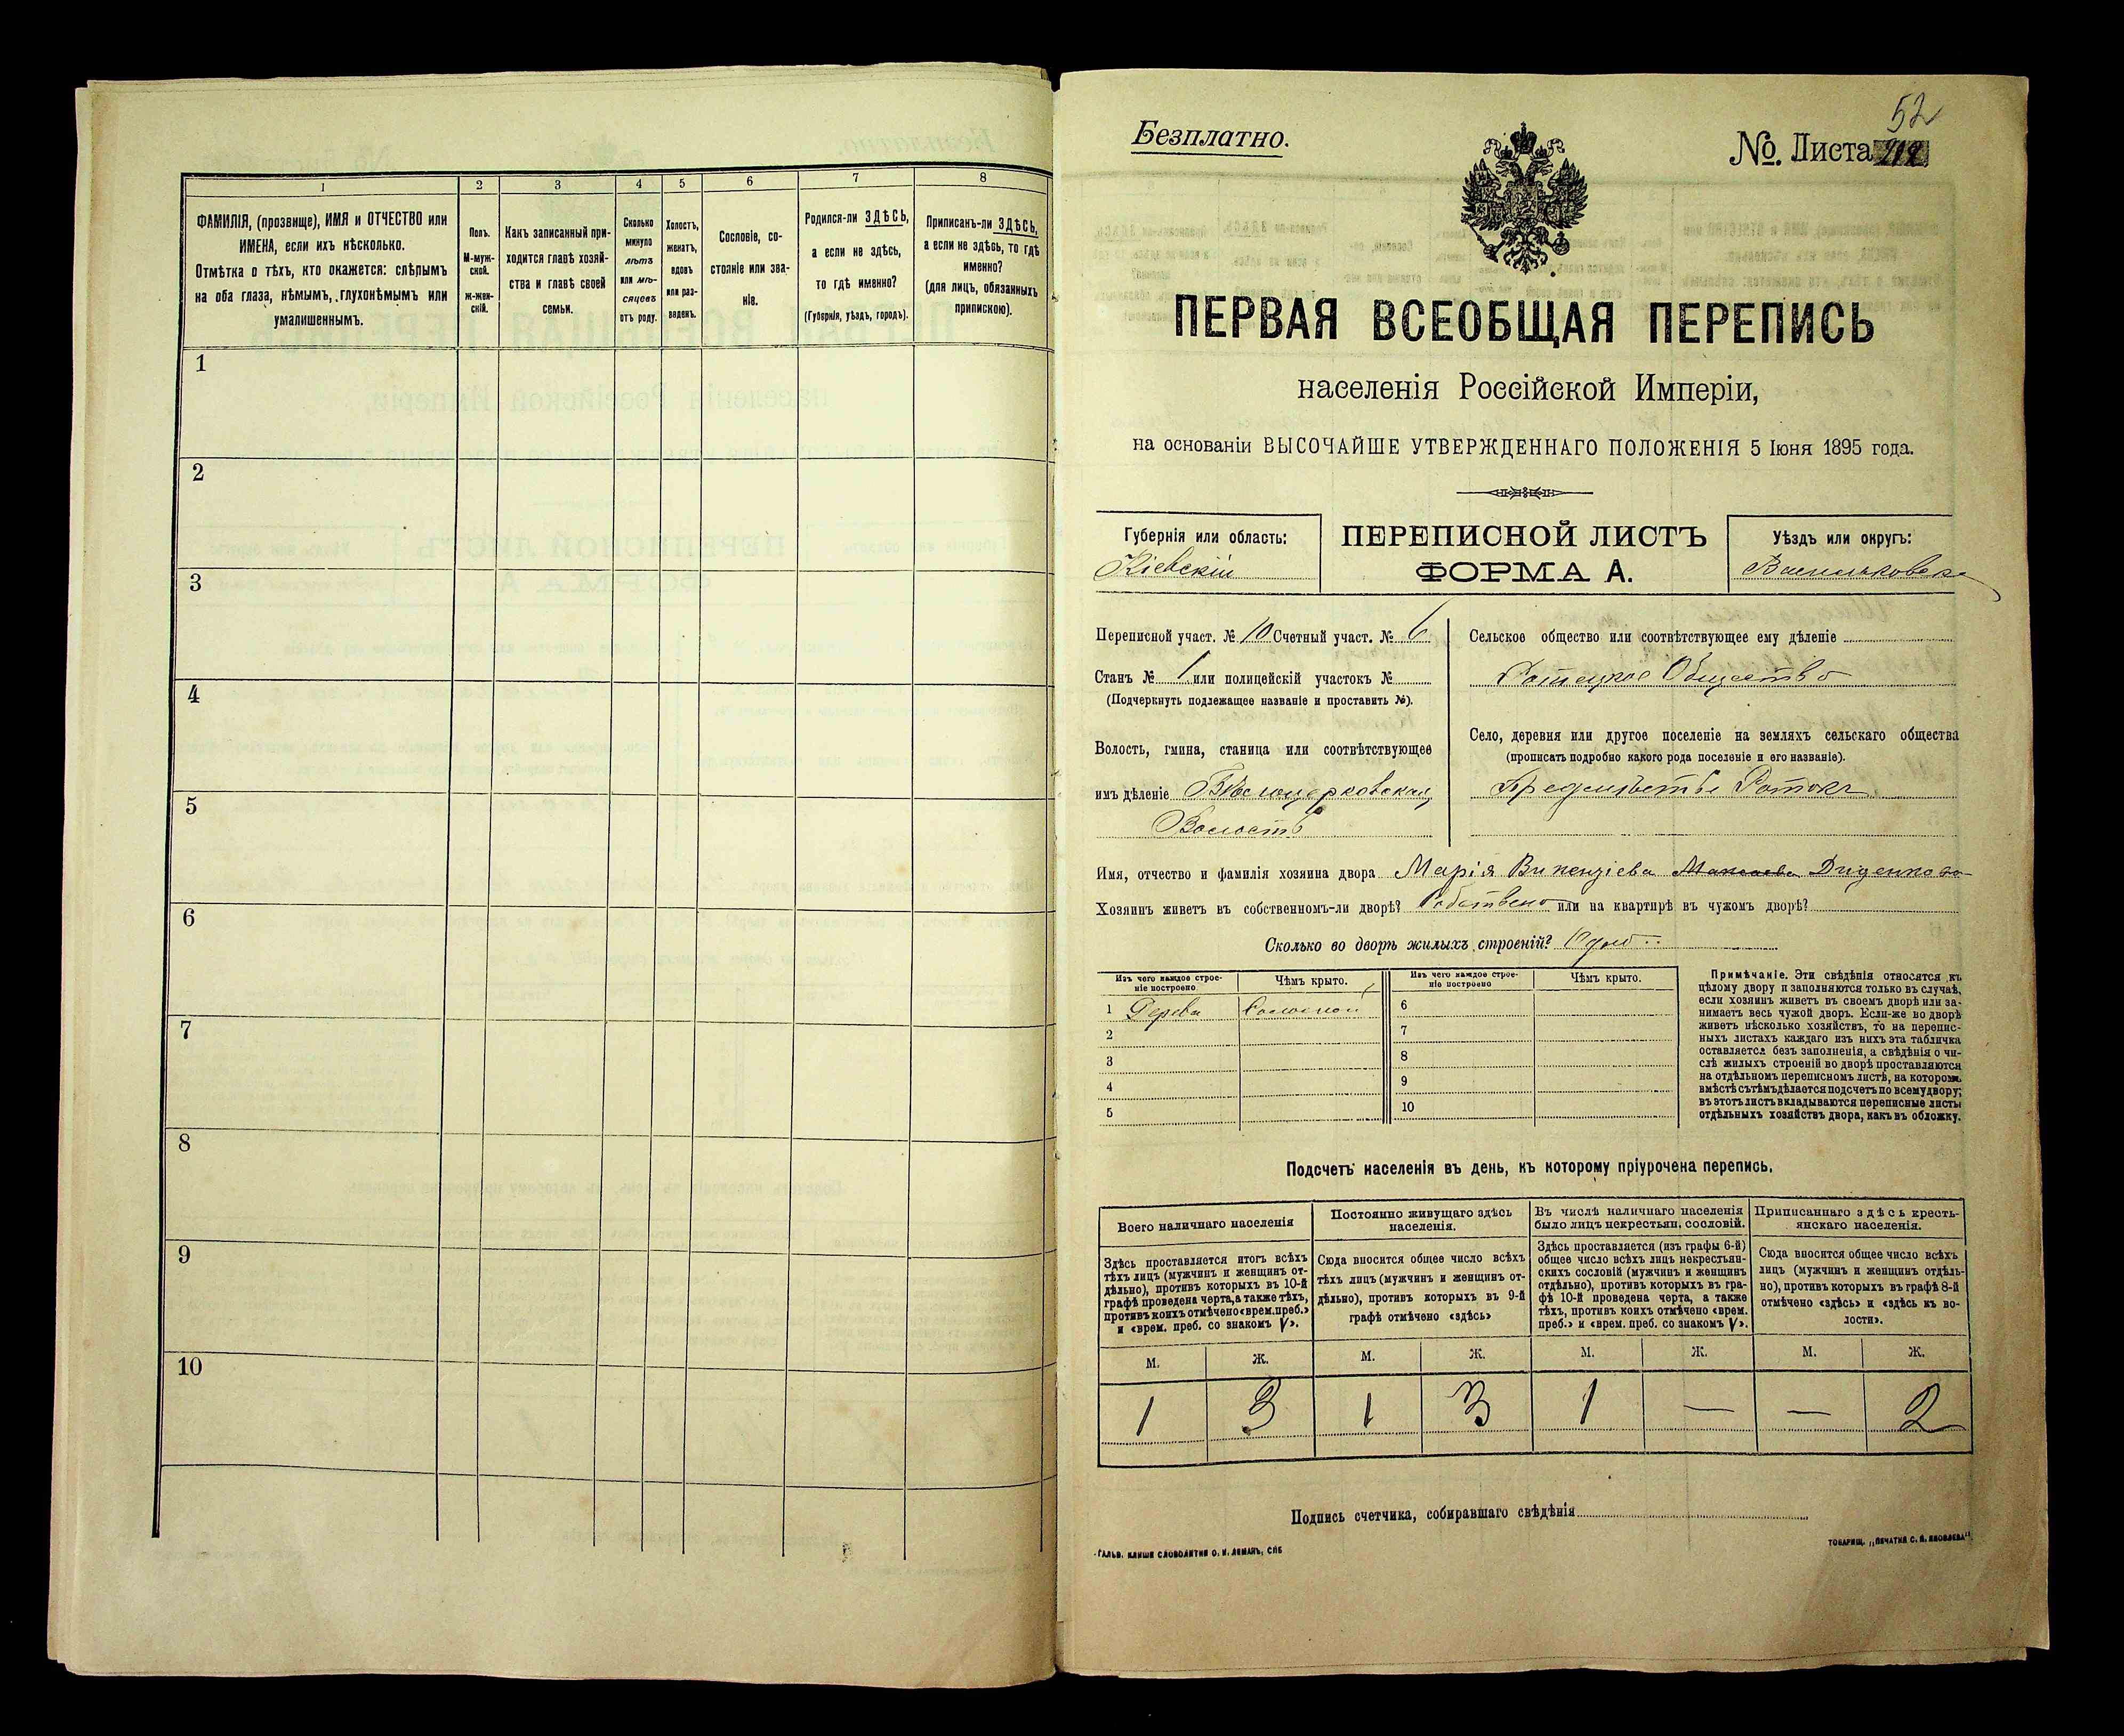 1
2
3
4
5
6
7
8
ФАМИЛІЯ, (прозвище), ИМЯ и ОТЧЕСТВО или
ИМЕНА, если ихъ нѣсколько.
Отмѣтка о тѣхъ, кто окажется: слѣпымъ
на оба глаза, нѣмымъ, глухонѣмымъ или
умалишеннымъ.
Полъ.
М-муж-
ской.
Ж-жен-
скій.
Какъ записанный при-
ходится главѣ хозяй-
ства и главѣ своей
семьи.
Сколько
минуло
лѣтъ
или мѣ-
сяцевъ
отъ роду.
Холостъ,
женатъ,
вдовъ
или раз-
веденъ.
Сословіе, со-
стояніе или зва-
ніе.
Родился-ли ЗДѢСЬ,
а если не здѣсь,
то гдѣ именно?
(Губернія, уѣздъ, городъ).
Приписанъ-ли ЗДѢСЬ,
а если не здѣсь, то гдѣ
именно?
(для лицъ, обязанныхъ
припискою).
1
2
3
4
5
6
7
8
9
10
52
Безплатно.
№. Листа 212
ПЕРВАЯ ВСЕОБЩАЯ ПЕРЕПИСЬ
населенія Россійской Имперіи,
на основаніи ВЫСОЧАЙШЕ УТВЕРЖДЕННАГО ПОЛОЖЕНІЯ 5 Іюня 1895 года.
Губернія или область:
Кіевскій
ПЕРЕПИСНОЙ ЛИСТЪ
ФОРМА А.
Уѣздъ или округъ:
Васильковск
Переписной участ. № 10 Счетный участ. № 6
Станъ № 1 или полицейскій участокъ №
(Подчеркнуть подлежащее названіе и проставить №).
Волость, гмина, станица или соотвѣтствующее
имъ дѣленіе Бѣлоцерковская
Волость
Сельское общество или соотвѣтствующее ему дѣленіе
Ротецкое Общество
Село, деревня или другое поселеніе на земляхъ сельскаго общества
(прописать подробно какого рода поселеніе и его названіе).
Предмѣстье Ротокъ
Имя, отчество и фамилія хозяина двора Марія Викендіева Диденково
Хозяинъ живетъ въ собственномъ-ли дворѣ? Собствено или на квартирѣ въ чужомъ дворѣ?
Сколько во дворѣ жилыхъ строеній? Одно
Изъ чего каждое строе-
ніе построено
Чѣмъ крыто.
Изъ чего каждое строе-
ніе построено
Чѣмъ крыто.
1 Дерева Соломой
2
3
4
5
6
7
8
9
10
Примѣчаніе. Эти свѣдѣнія относятся къ
цѣлому двору и заполняются только въ случаѣ,
если хозяинъ живетъ въ своемъ дворѣ или за-
нимаетъ весь чужой дворъ. Если-же во дворѣ
живетъ нѣсколько хозяйствъ, то на перепис-
ныхъ листахъ каждаго изъ нихъ эта табличка
оставляется безъ заполненія, а свѣдѣнія о чи-
слѣ жилыхъ строеній во дворѣ проставляются
на отдѣльномъ переписномъ листѣ, на которомъ
вмѣстѣ съ тѣмъ дѣлается подсчетъ по всему двору;
въ этотъ листъ вкладываются переписные листы
отдѣльныхъ хозяйствъ двора, какъ въ обложку.
Подсчетъ населенія въ день, къ которому пріурочена перепись.
Всего наличнаго населенія
Постоянно живущаго здѣсь
населенія.
Въ числѣ наличнаго населенія
было лицъ некрестьян. сословій.
Приписаннаго здѣсь кресть-
янскаго населенія.
Здѣсь проставляется итогъ всѣхъ
тѣхъ лицъ (мужчинъ и женщинъ от-
дѣльно), противъ которыхъ въ 10-й
графѣ проведена черта, а также тѣхъ,
противъ коихъ отмѣчено «врем. преб.»
и «врем. преб. со знакомъ V».
Сюда вносится общее число всѣхъ
тѣхъ лицъ (мужчинъ и женщинъ от-
дѣльно), противъ которыхъ въ 9-й
графѣ отмѣчено «здѣсь»
Здѣсь проставляется (изъ графы 6-й)
общее число всѣхъ лицъ некрестьян-
скихъ сословій (мужчинъ и женщинъ
отдѣльно), противъ которыхъ въ гра-
фѣ 10-й проведена черта, а также
тѣхъ, противъ коихъ отмѣчено «врем.
преб.» и «врем. преб. со знакомъ V».
Сюда вносится общее число всѣхъ
лицъ (мужчинъ и женщинъ отдѣль-
но), противъ которыхъ въ графѣ 8-й
отмѣчено «здѣсь» и «здѣсь къ во-
лости».
М. Ж. М. Ж. М. Ж. М. Ж.
1 3 1 3 1 — — 2
Подпись счетчика, собиравшаго свѣдѣнія
ГАЛЬВ. КЛИШЕ СЛОВОЛИТНИ О. И. ЛЕМАНЪ, СПБ
ТОВАРИЩ. „ПЕЧАТНЯ С. П. ЯКОВЛЕВА"